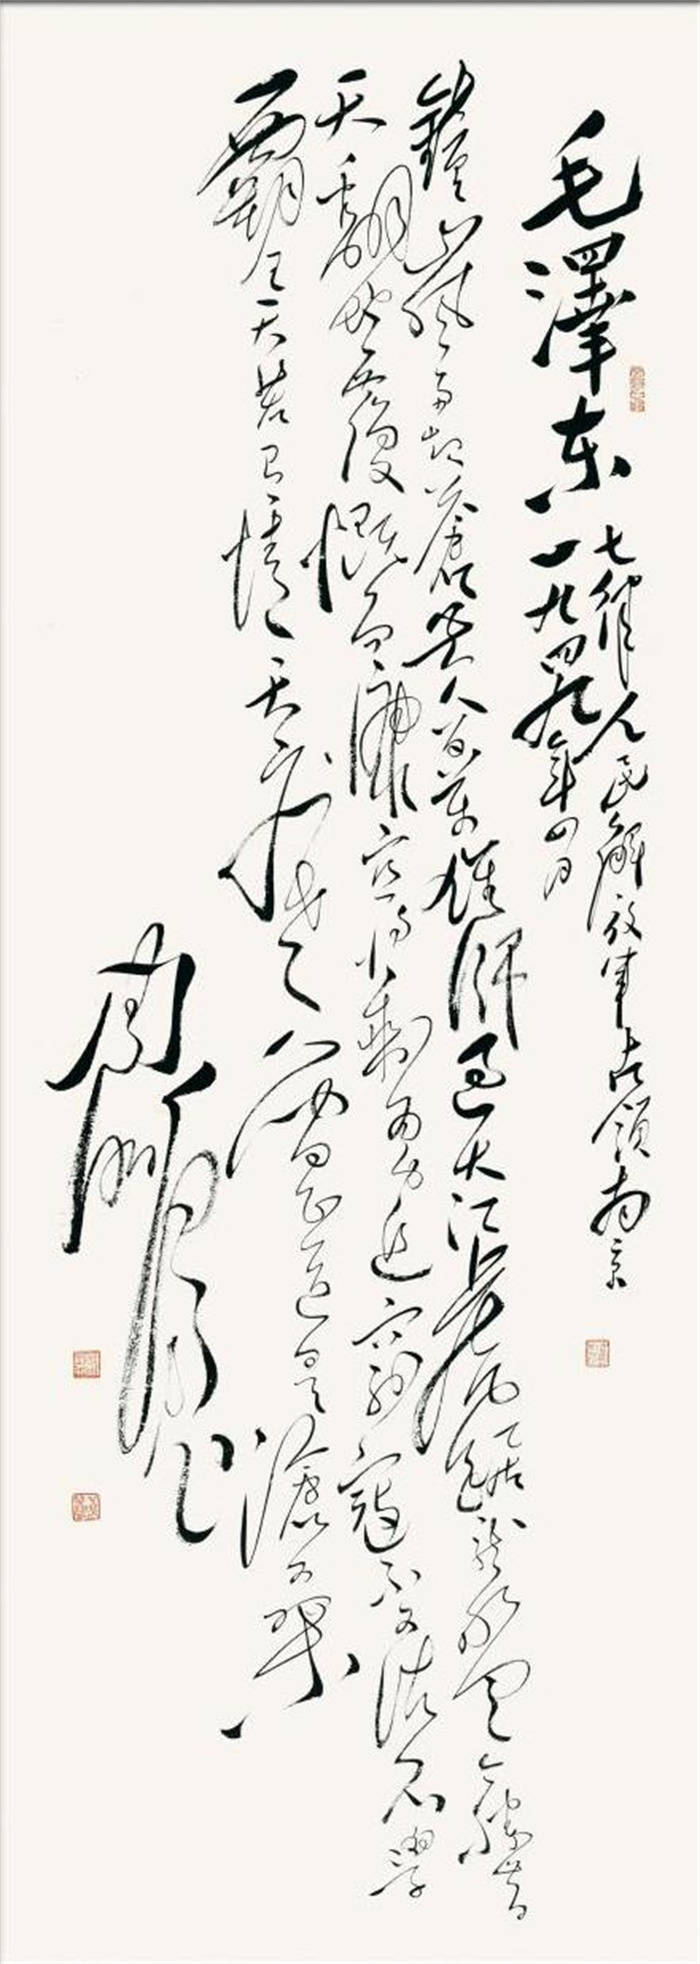 毛澤东
七律人民解放军占领南京
一九四九年四月
鐘山風雨起蒼黄百萬雄师过大江虎踞龍盤今勝昔
天翻地覆慨而慷宜将剩勇追窮寇不可沽名學
霸王天若有情天亦老人间正道是滄桑